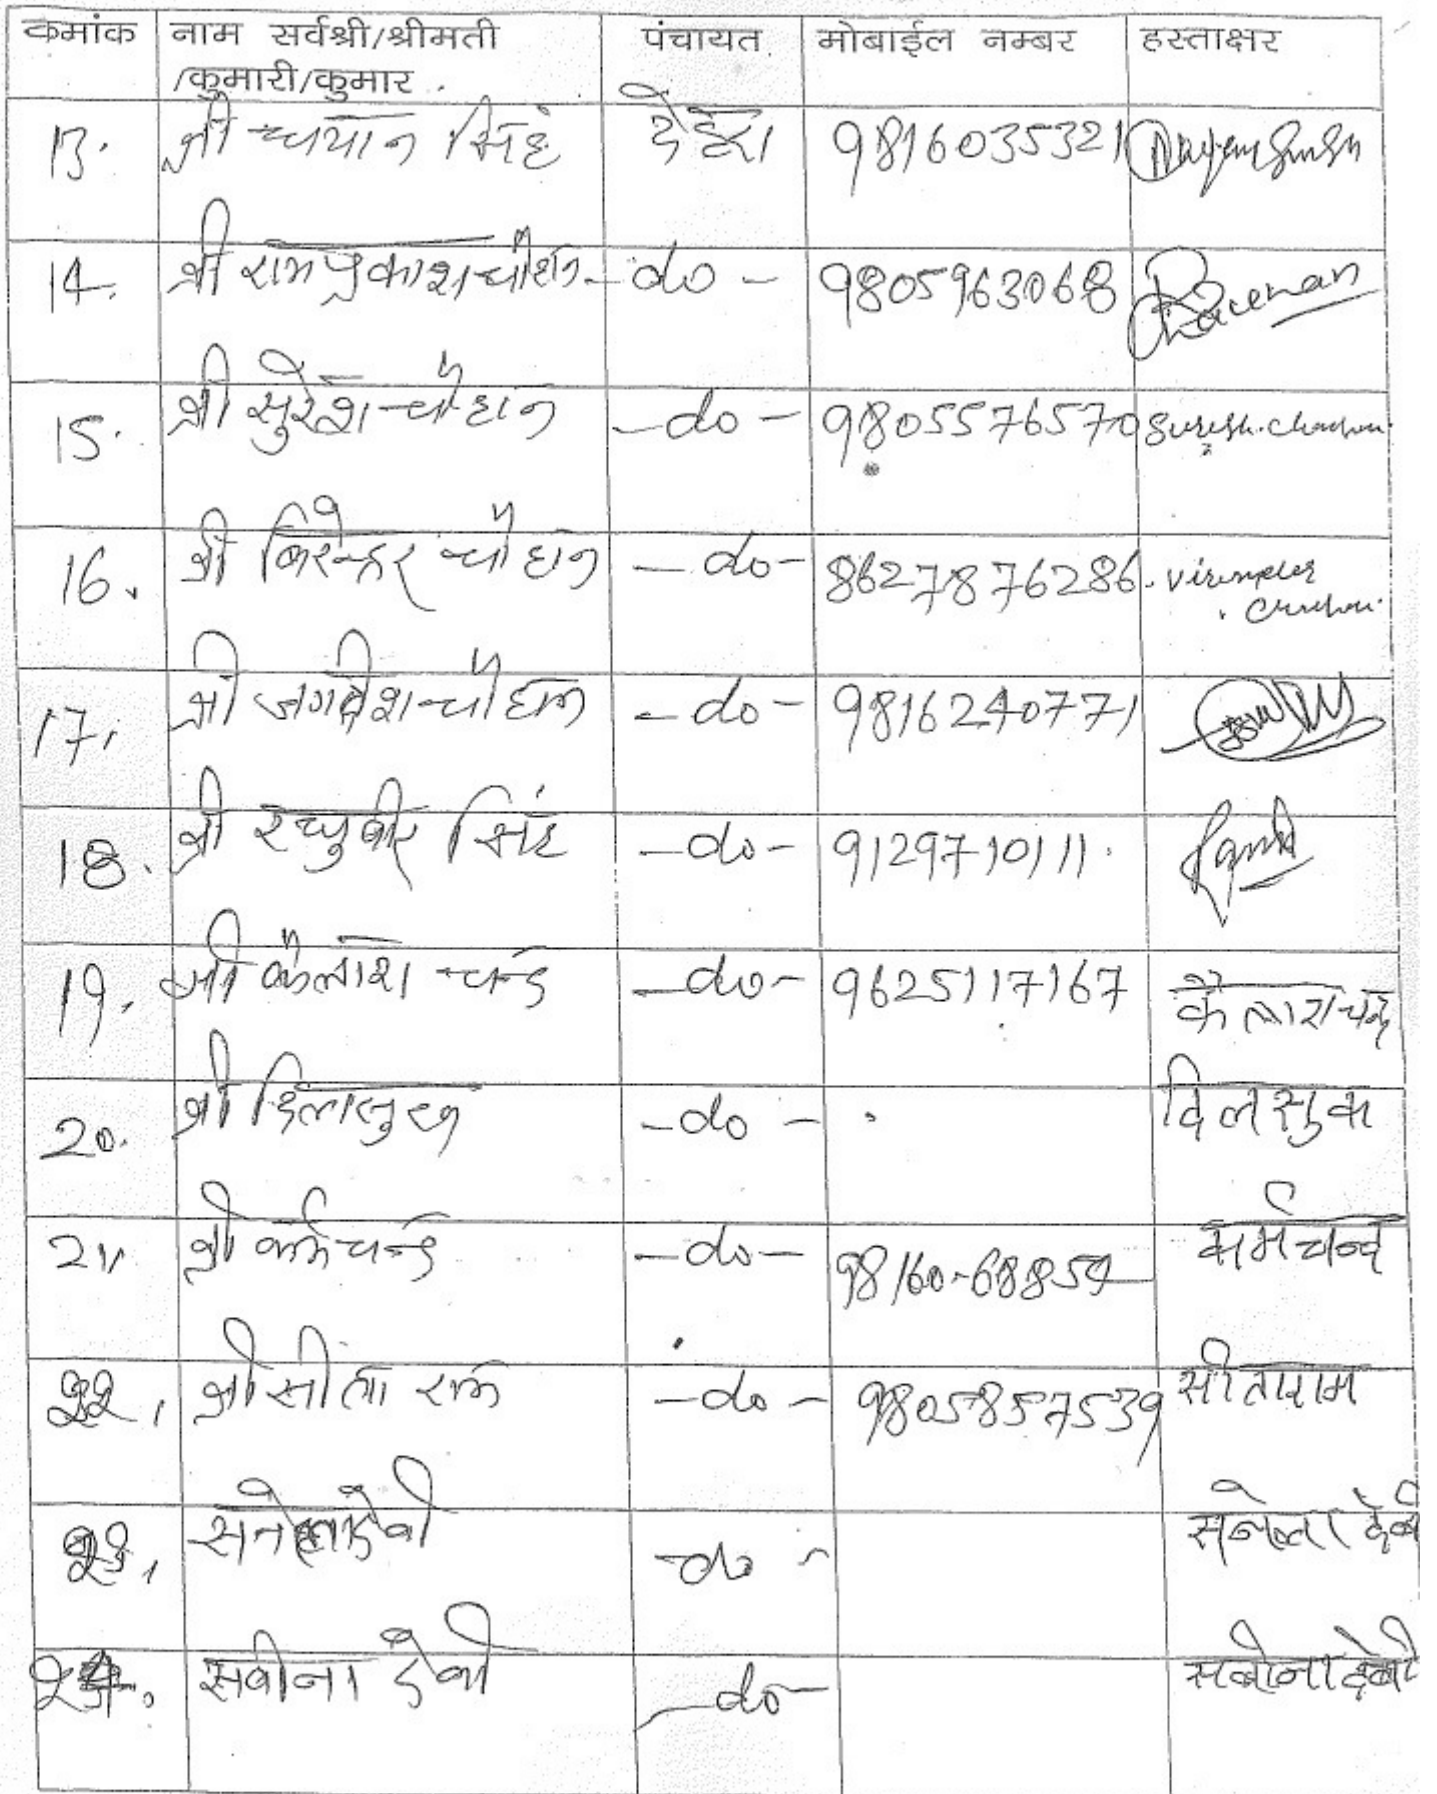 कमांक नाम सर्वश्री/श्रीमती /कुमारी/कुमार पंचायत मोबाईल नम्बर हस्ताक्षर
13. श्री ध्यान सिंह देहरा 9816035321
14. श्री राम प्रकाश चौहान -do- 9805963068
15. श्री सुरेश चौहान -do- 9805576570 Suresh. Chauhan
16. श्री बिरेन्द्र चौहान -do- 8627876286
17. श्री जगदीश चौहान -do- 9816240771
18. श्री रघुबीर सिंह -do- 9129710111
19. श्री कैलाश चन्द -do- 9625117167 कैलाश चन्द
20. श्री दिलासुख -do- दिलसुक
21. श्री कर्म चन्द -do- 98160-68859 कर्म चन्द
22. श्री सीता राम -do- 9805857539 सीताराम
23. देवी -do- देवी
24. सबीना देवी -do- सबीना देवी